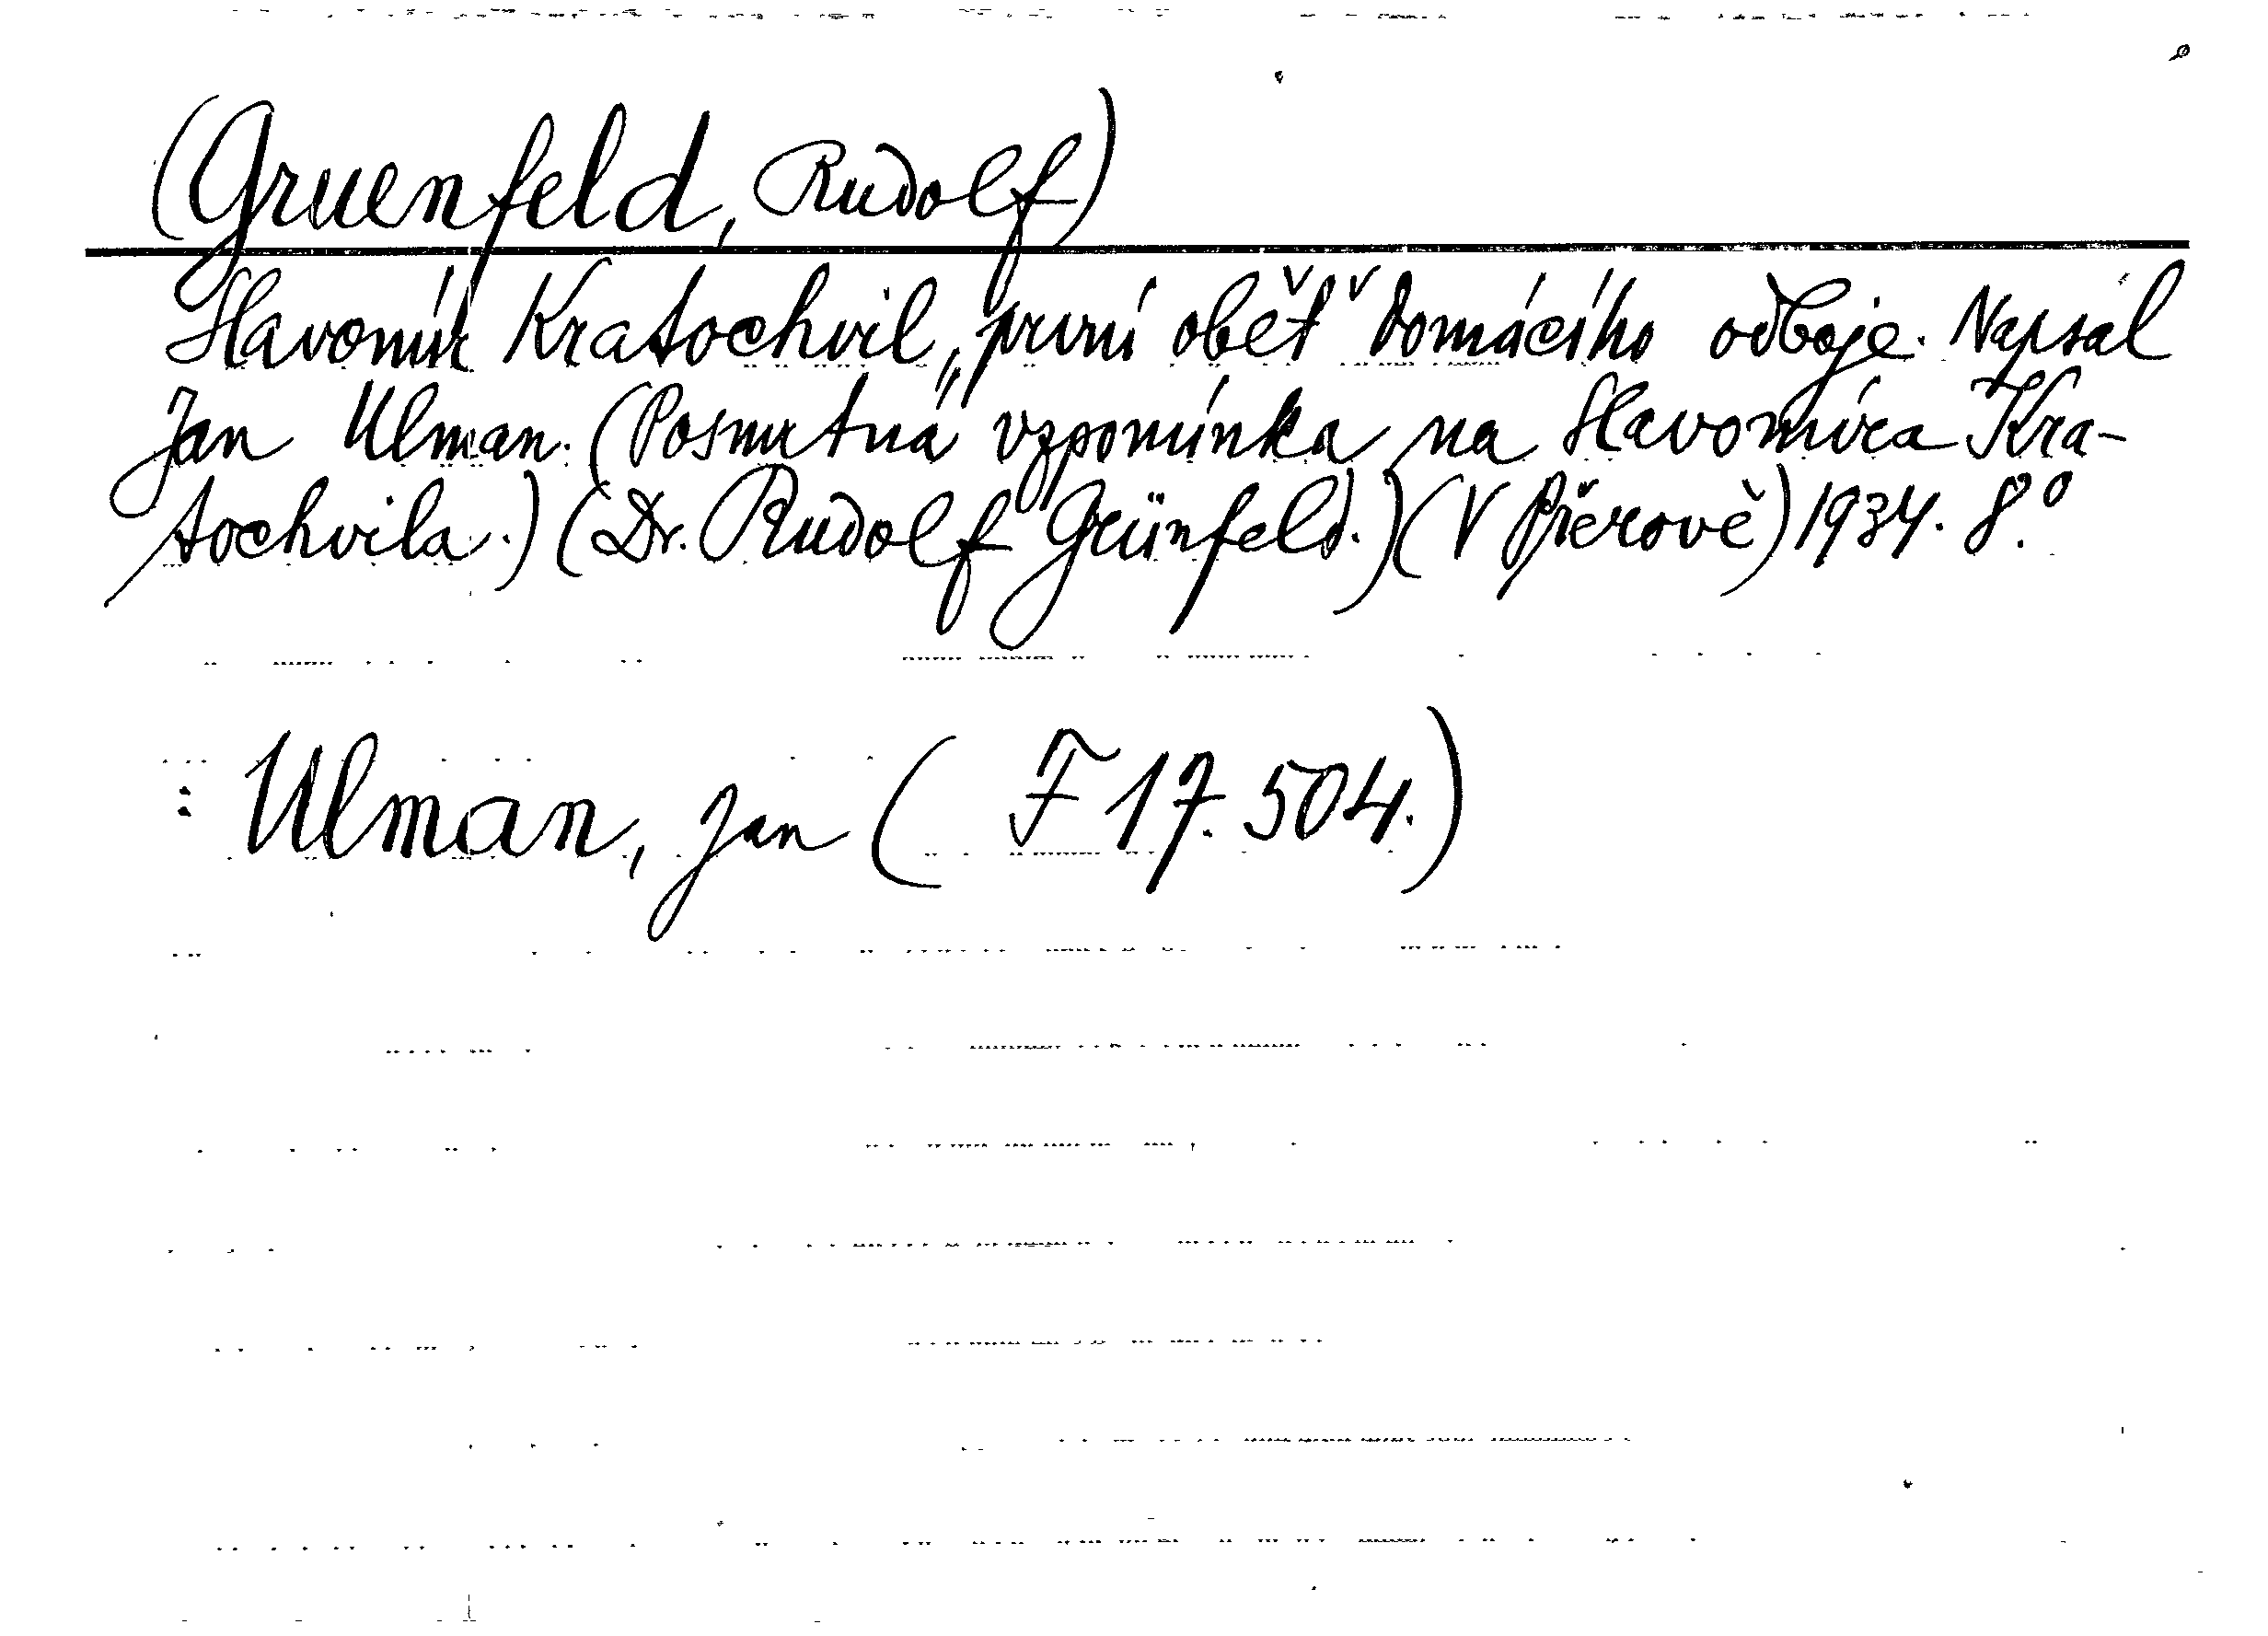 (Gruenfeld, Rudolf)
Slavomír Kratochvil, „první oběť" domácího odboje. Napsal
Jan Ulman. (Posmrtná vzpomínka na Slavomíra Kra-
tochvila.) (Dr. Rudolf Grünfeld.) (V Přerově) 1934. 8.°
: Ulman, Jan ( F 17.504.)